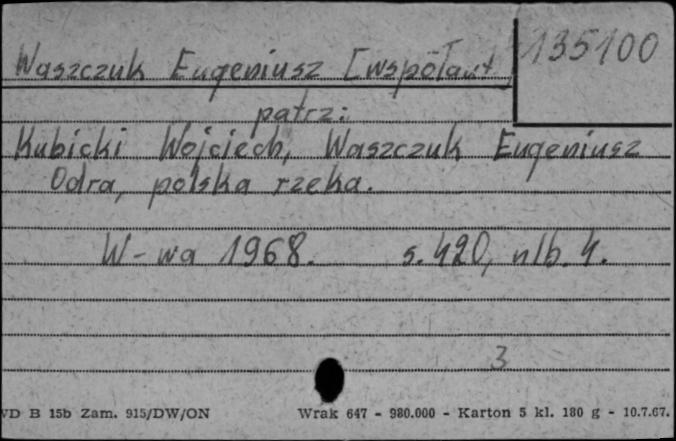 Waszczuk Eugeniusz [współaut.]
135100
patrz:
Kubicki Wojciech, Waszczuk Eugeniusz
Odra, polska rzeka.
W-wa 1968. s. 420, nlb. 4.
3
VD B 15b Zam. 915/DW/ON Wrak 647 - 980.000 - Karton 5 kl. 180 g - 10.7.67.